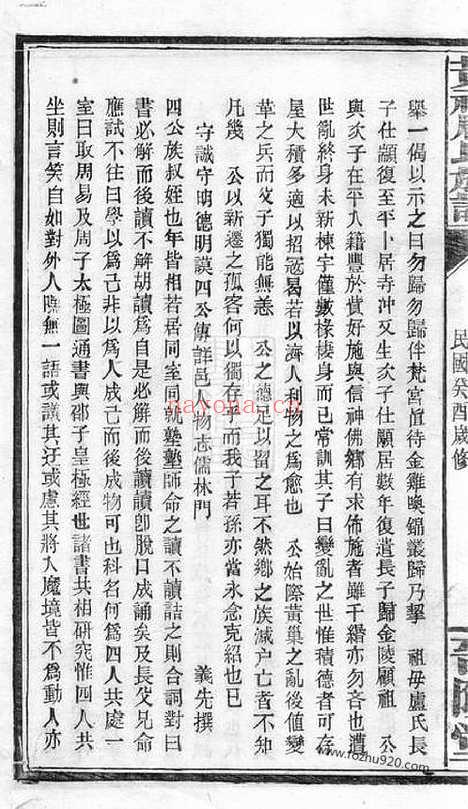 舉一偈以示之曰勿歸勿歸伴梵宮直待金雞喚錦叢歸乃挈　祖母盧氏長
子仕顯復至平卜居寺冲又生次子仕願居數年復遣長子歸金陵顧祖　公
與次子在平入籍豐於貲好施與信神佛鄉有求佈施者雖千緡亦勿吝也遭
世亂終身未新棟宇僅數椽棲身而已常訓其子曰變亂之世惟積德可存
屋大積多適以招冦曷若以濟人利物之爲愈也　公始際黃巢之亂後値變
革之兵而父子獨能無恙　公之德足以留之耳不然鄉之族滅户亡者不知
凡幾　公以新遷之孤客何以獨存乎而我子若孫亦當永念克紹也已
守誠守明德明謨四公傳詳邑人物志儒林門　　義先撰
四公族叔姪也年皆相若居同室同就塾塾師命之讀不讀詰之則合詞對曰
書必解而後讀不解胡讀爲自是必解而後讀讀卽脫口成誦矣及長父兄命
應試不往曰學以爲己非以爲人成己而後成物可也科名何爲四人共處一
室日取周易及周子太極圖通書與邵子皇極經世諸書共相研究惟四人共
坐則言笑自如對外人嘿無一語或議其迂或慮其將入魔境皆不爲動人亦
民國癸酉歲修
nayona.cn
www.fozhu920.com